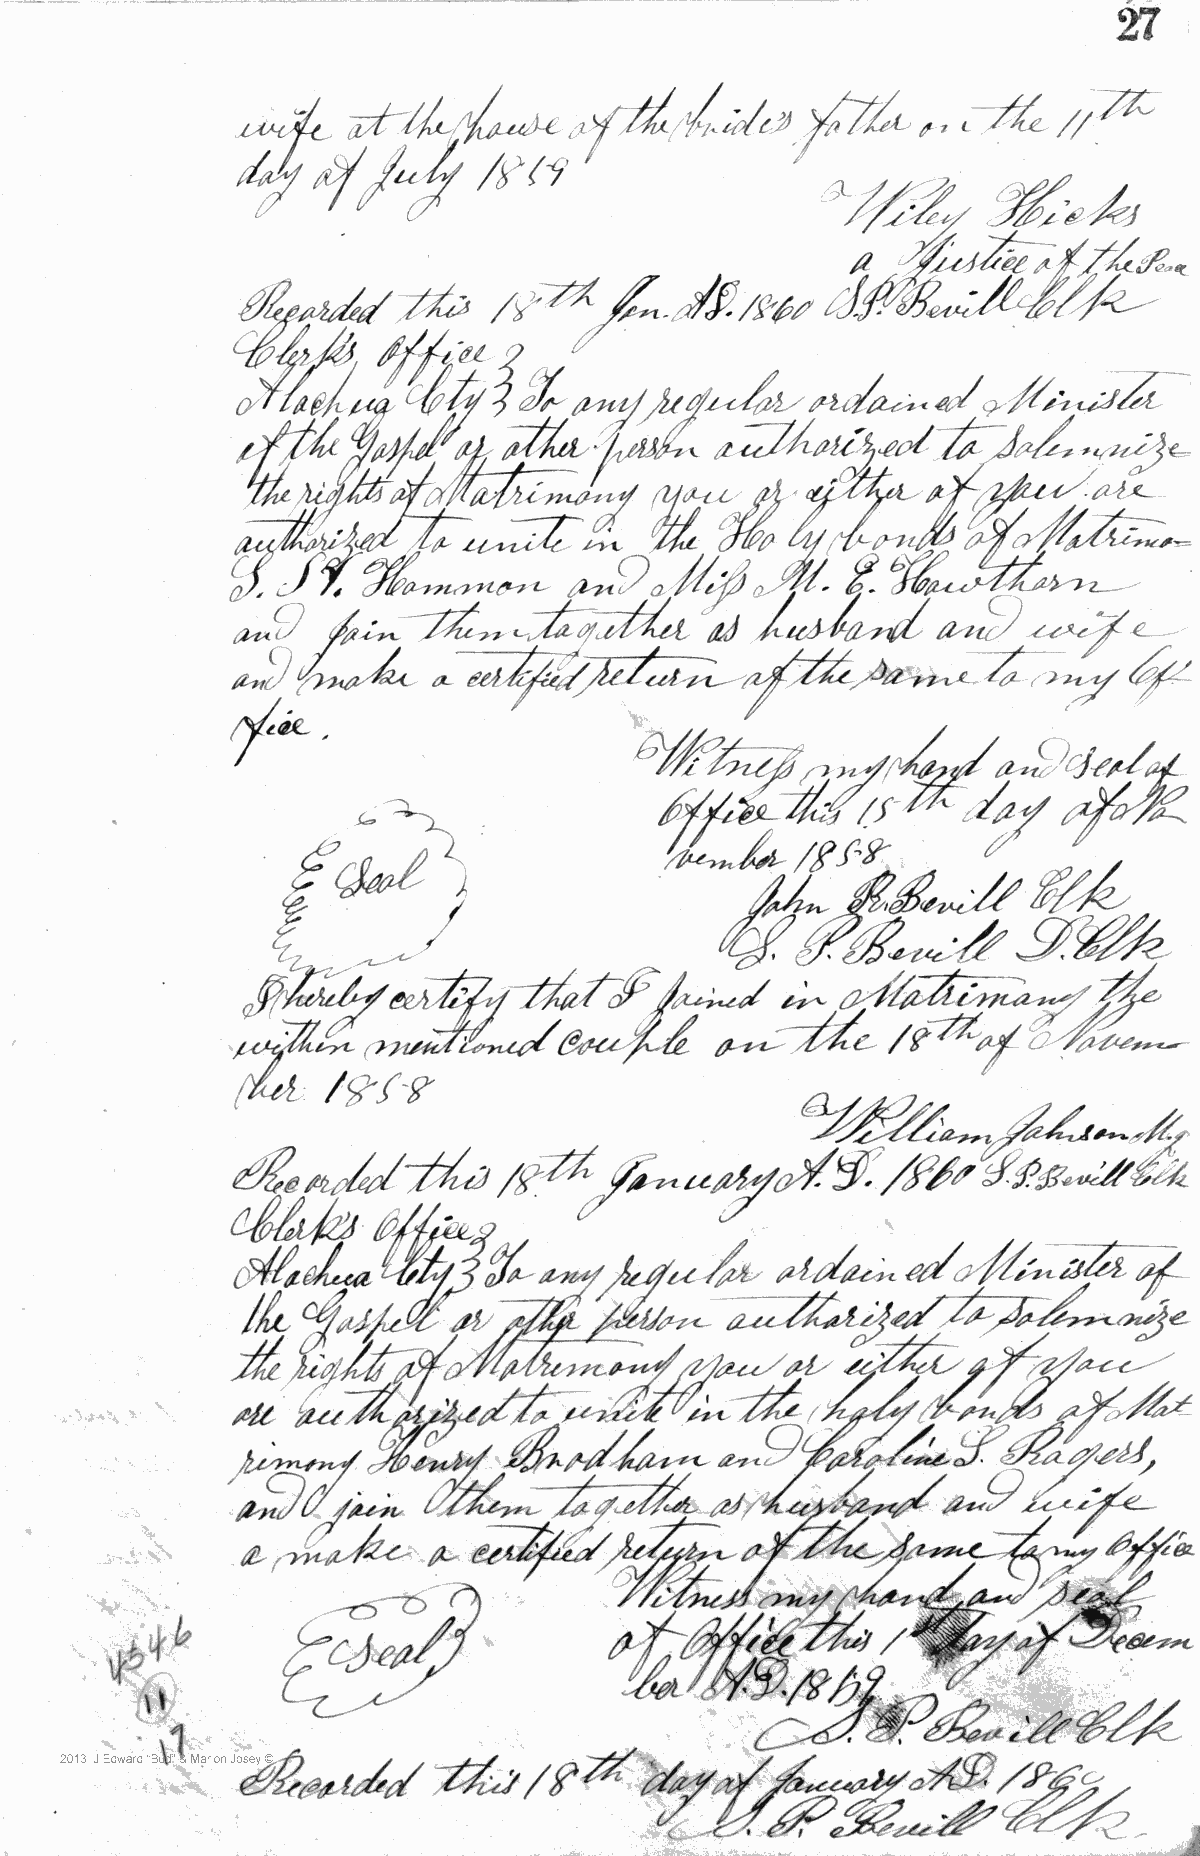 27
wife at the house of the bride's father on the 11th
day of July 1859
Wiley Hicks
a Justice of the Peace
Recorded this 18th Jan. A.D. 1860 S.P. Bevill Clk
Clerk's Office }
Alachua Cty } To any regular ordained Minister
of the Gospel or other person authorized to solemnize
the rights of Matrimony you or either of you are
authorized to unite in the Holy bonds of Matrimo=
Hammon and Miss M. E. Hawthorn
and join them together as husband and wife
and make a certified return of the same to my Of-
fice.
Witness my hand and seal of
Office this 15th day of No
vember 1858
Seal
John R. Bevill Clk
S. P. Bevill D. Clk
I hereby certify that I joined in Matrimony the
within mentioned couple on the 18th of Novem-
ber 1858
William Johnson M.g
Recorded this 18th January A.D. 1860 S.P. Bevill Clk
Clerk's Office }
Alachua Cty } To any regular ordained Minister of
the Gospel or other person authorized to solemnize
the rights of Matrimony you or either of you
are authorized to unite in the holy bonds of Mat
rimony Henry Brodham and Caroline S. Rogers,
and join them together as husband and wife
a make a certified return of the same to my Office
Witness my hand and seal
of Office this 1st day of Decem
ber A.D. 1859
Seal
4546
11
17
S. P. Bevill Clk
2013 J Edward "Bud" & Marion Josey ©
Recorded this 18th day of January A.D. 1860
S. P. Bevill Clk.